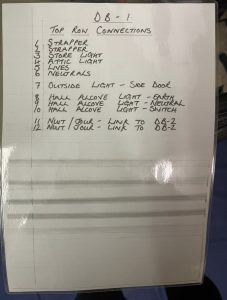 DB-1
TOP ROW CONNECTIONS
1 STRAPPER
2 STRAPPER
3 STORE LIGHT
4 ATTIC LIGHT
5 LIVES
6 NEUTRALS
7 OUTSIDE LIGHT - SIDE DOOR
8 HALL ALCOVE LIGHT - EARTH
9 HALL ALCOVE LIGHT - NEUTRAL
10 HALL ALCOVE LIGHT - SWITCH
11 NUT / FOUR - LINK TO DB-2
12 NUT / FOUR - LINK TO DB-2